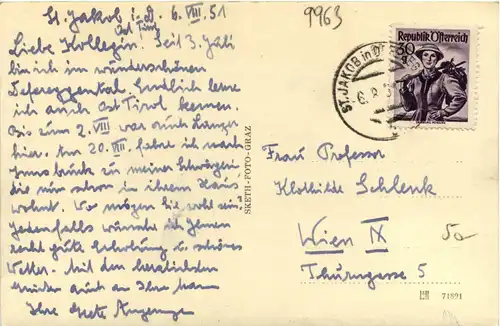 St. Jakob i. D. 6. VIII. 51
Ost Tirol
Liebe Kollegin! Seit 3. Juli
bin ich im wunderschönen
Defereggental. Endlich lerne
ich auch Ost Tirol kennen.
Bis zum 2. VIII war auch
hier. Am 20. VIII. fahre ich nach
Innsbruck zu meiner Schwägerin
die nun schon in ihrem Haus
wohnt. Wo mögen Sie wohl sein?
Jedenfalls wünsche ich Ihnen
recht gute Erholung u. schönes
Wetter. Mit den herzlichsten
auch an Ihre
Ihre
SKETH-FOTO-GRAZ
9963
Republik Österreich
30 g
ST. JAKOB in
6. 8. 5
Frau Professor
Klothilde Schlenk
Wien IX
Thurngasse 5
50
71891